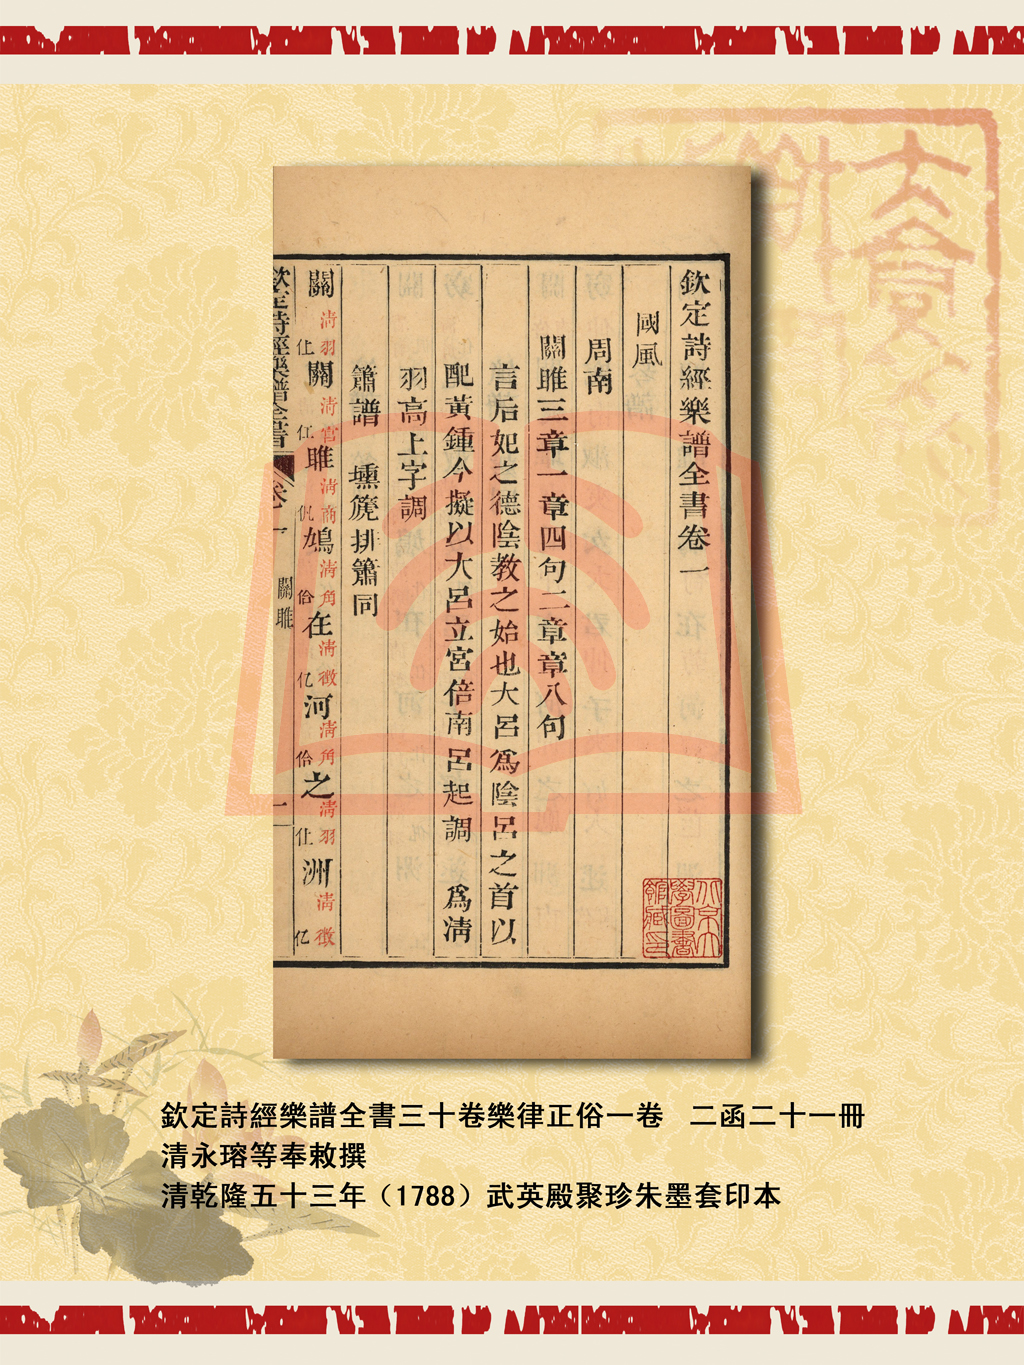 欽定詩經樂譜全書卷一
國風
周南
關雎三章一章四句二章章八句
言后妃之德陰教之始也大呂爲陰呂之首以
配黃鍾今擬以大呂立宮倍南呂起調　爲清
羽高上字調
簫譜　壎篪排簫同
關清羽仩關清宮仜雎清商伬鳩清角佮在清徵亿河清角佮之清羽仩洲清徵亿
欽定詩經樂譜全書　卷一　關雎　一
北京大學圖書館藏印
欽定詩經樂譜全書三十卷樂律正俗一卷　二函二十一冊
清永瑢等奉敕撰
清乾隆五十三年（1788）武英殿聚珍朱墨套印本